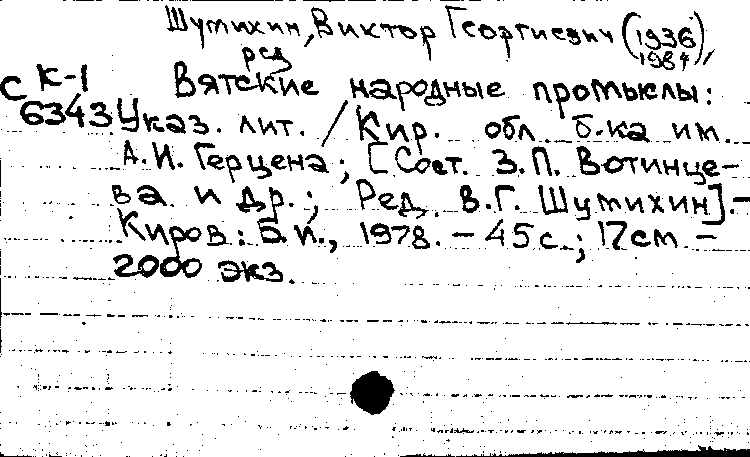 Шумихин, Виктор Георгиевич (1936
ред 1984
С К-1 Вятские народные промыслы:
6343 Указ. лит. / Кир. обл. б-ка им.
А.И. Герцена; [Сост. З.П. Вотинце-
ва и др.; Ред. В.Г. Шумихин].-
Киров: Б.и., 1978. - 45 с.; 17 см. -
2000 экз.